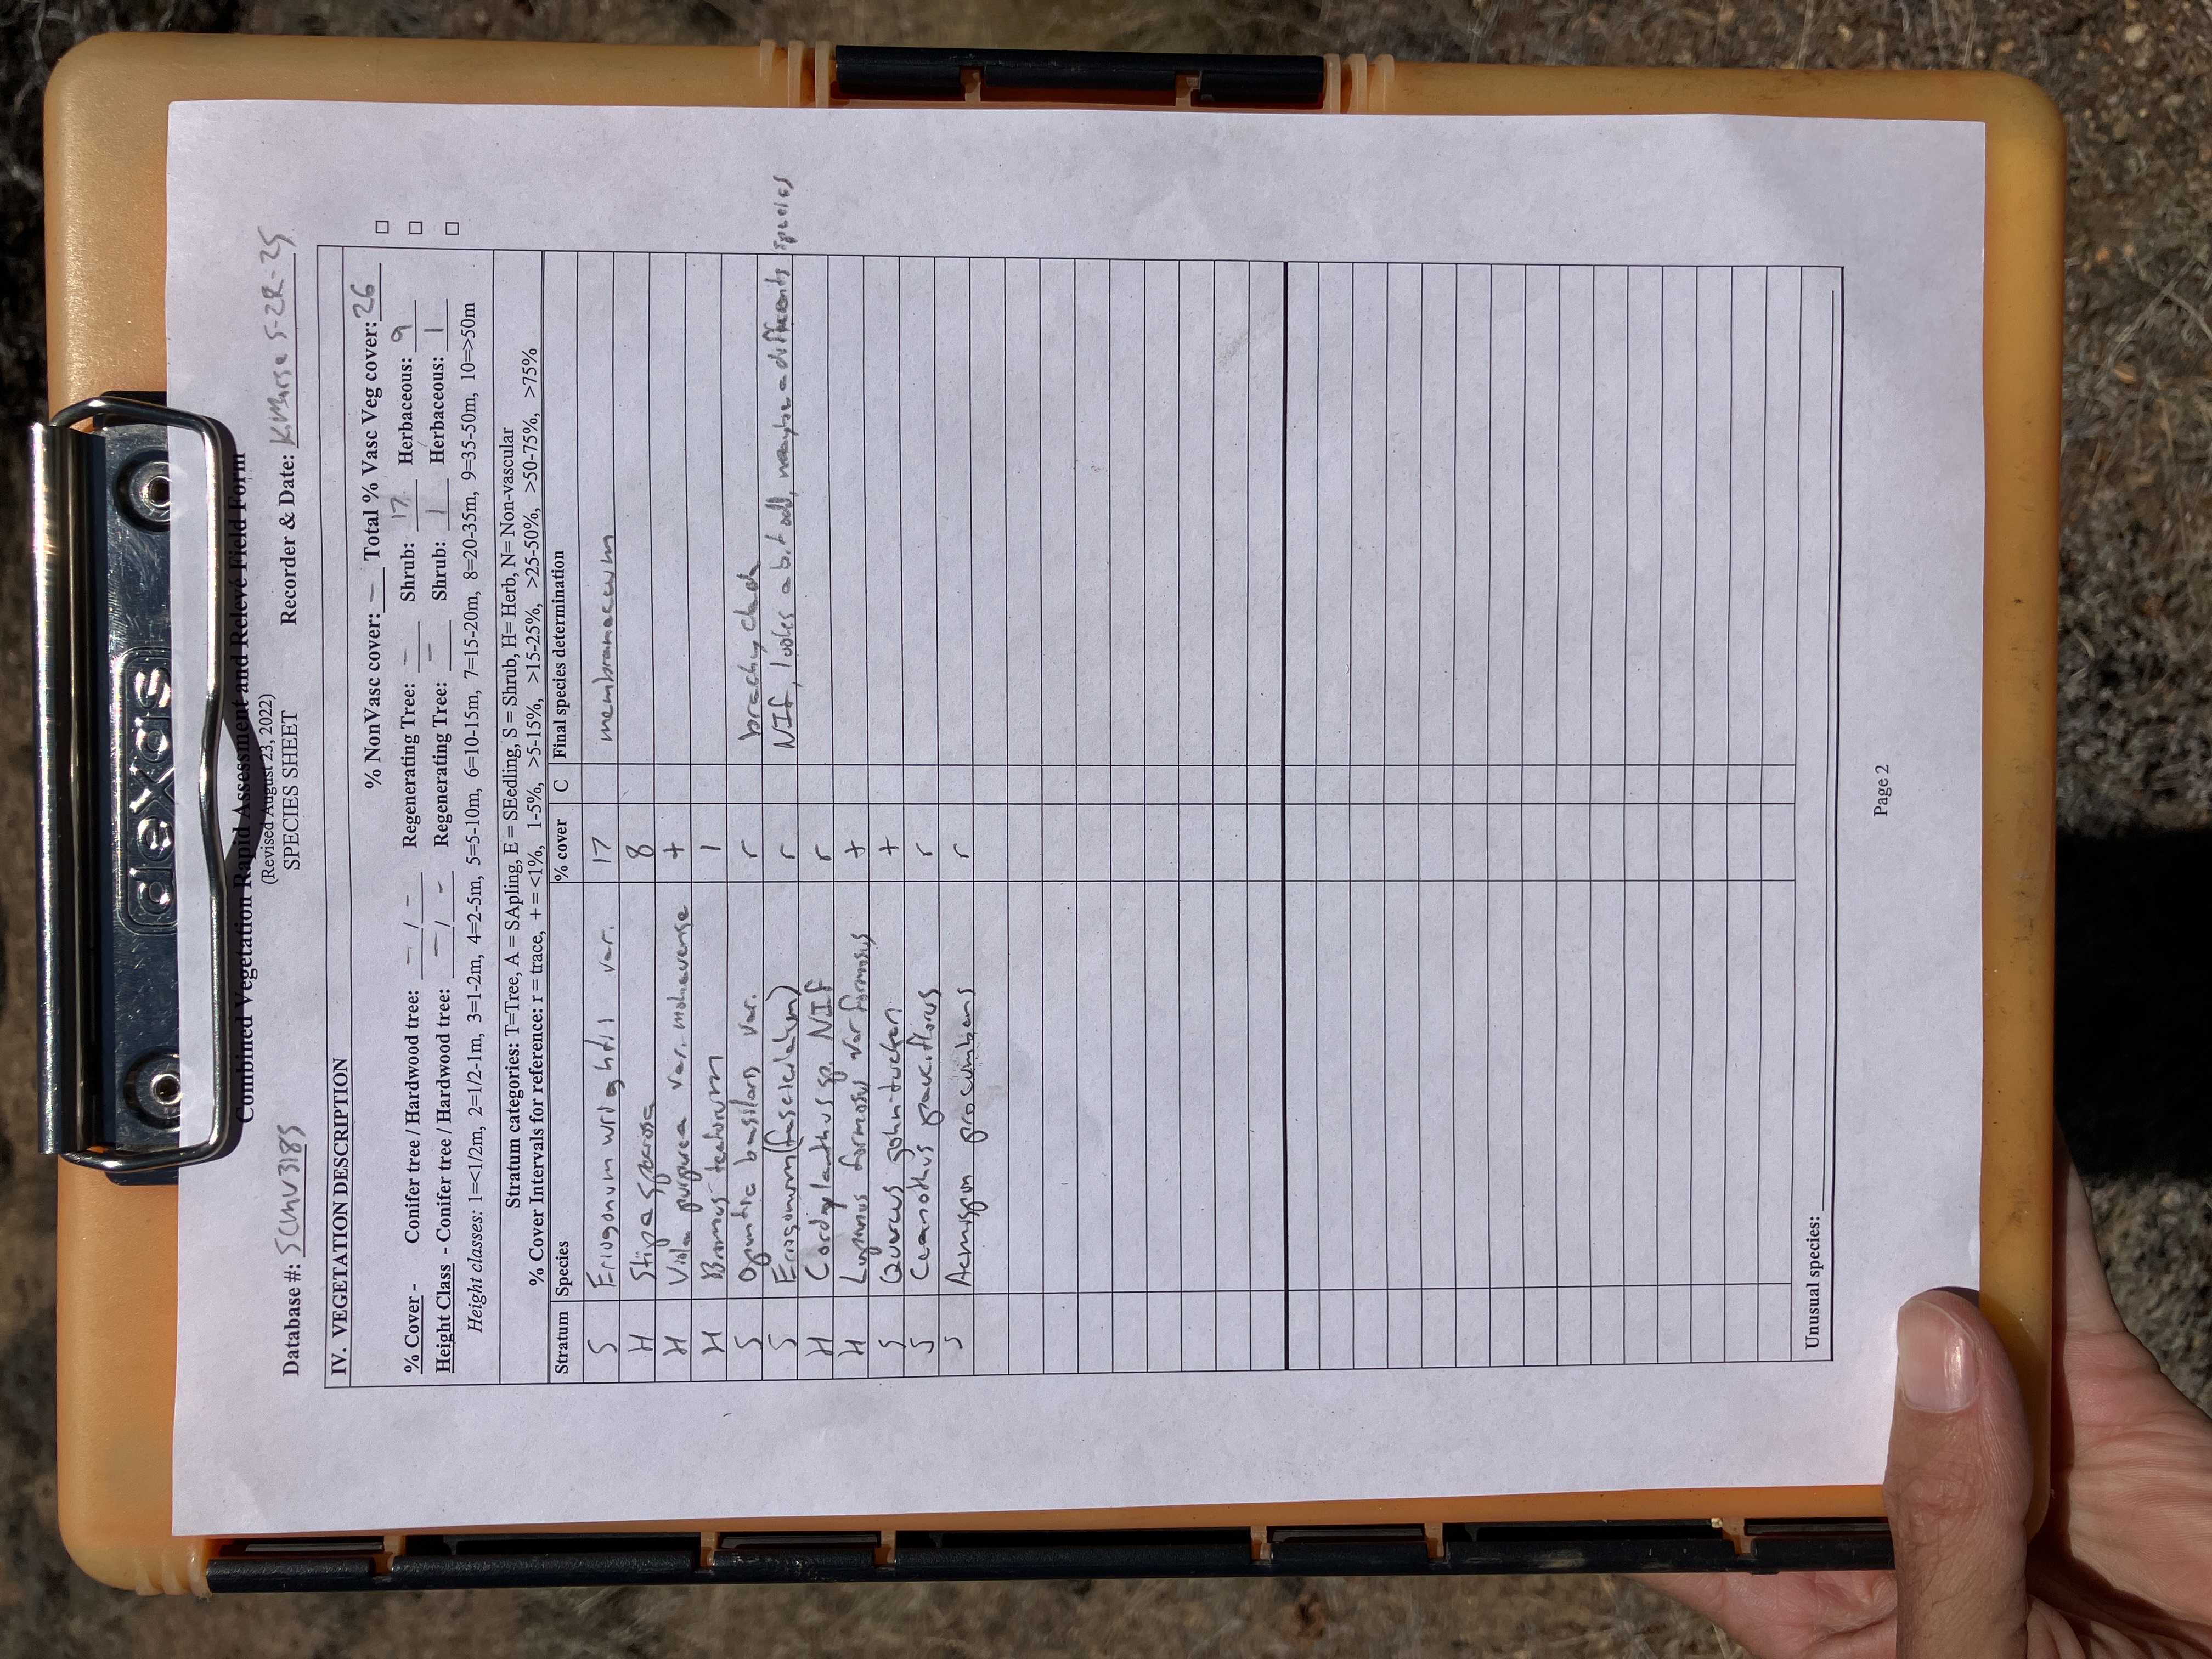 dexas
Combined Vegetation Rapid Assessment and Relevé Field Form
(Revised August 23, 2022)
SPECIES SHEET
Database #: SCMV3185 Recorder & Date: K.Nurse 5-28-25
IV. VEGETATION DESCRIPTION
% NonVasc cover: — Total % Vasc Veg cover: 26
% Cover - Conifer tree / Hardwood tree: — / — Regenerating Tree: — Shrub: 17 Herbaceous: 9
Height Class - Conifer tree / Hardwood tree: — / — Regenerating Tree: — Shrub: 1 Herbaceous: 1
Height classes: 1=<1/2m, 2=1/2-1m, 3=1-2m, 4=2-5m, 5=5-10m, 6=10-15m, 7=15-20m, 8=20-35m, 9=35-50m, 10=>50m
Stratum categories: T=Tree, A = SApling, E = SEedling, S = Shrub, H= Herb, N= Non-vascular
% Cover Intervals for reference: r = trace, + = <1%, 1-5%, >5-15%, >15-25%, >25-50%, >50-75%, >75%
Stratum Species % cover C Final species determination
S Eriogonum wrightii var. 17 membranaceum
H Stipa speciosa 8
H Viola purpurea var. mohavense +
H Bromus tectorum 1
S Opuntia basilaris var. r brachyclada
S Eriogonum (fasciculatum) r NIF, looks a bit odd, maybe a different species
H Cordylanthus sp. NIF r
H Lupinus formosus var formosus +
S Quercus john-tuckeri +
S Ceanothus pauciflorus r
S Acmispon procumbens r
Unusual species:
Page 2